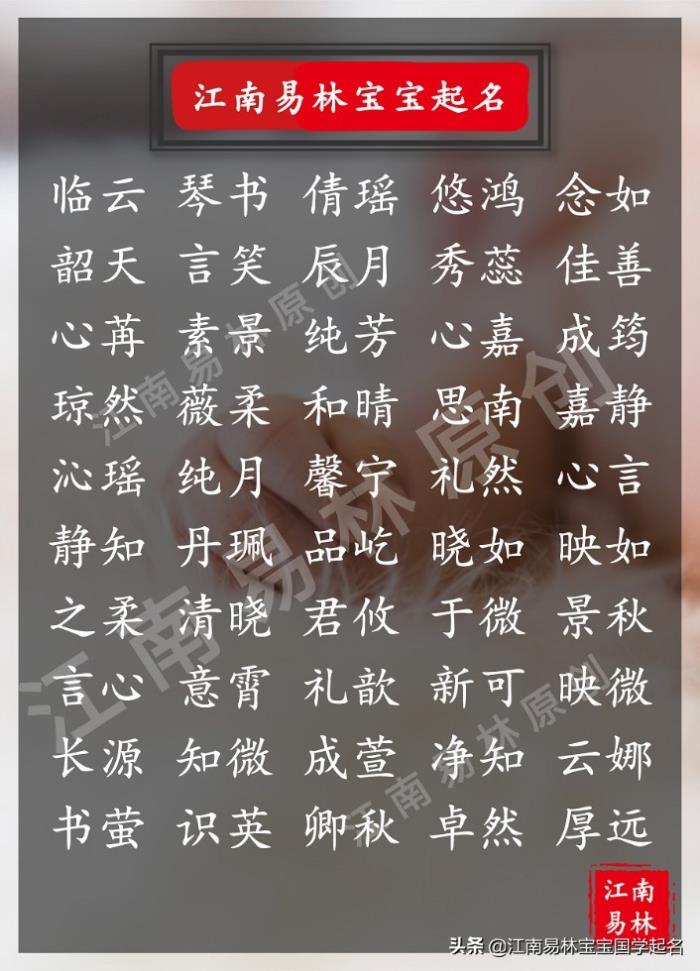 江南易林宝宝起名
临云 琴书 倩瑶 悠鸿 念如
韶天 言笑 辰月 秀蕊 佳善
心苒 素景 纯芳 心嘉 成筠
琼然 薇柔 和晴 思南 嘉静
沁瑶 纯月 馨宁 礼然 心言
静知 丹珮 品屹 晓如 映如
之柔 清晓 君攸 于微 景秋
言心 意霄 礼歆 新可 映微
长源 知微 成萱 净知 云娜
书萤 识英 卿秋 卓然 厚远
江南易林原创
江南易林原创
江南易林原创
江南
易林
头条 @江南易林宝宝国学起名